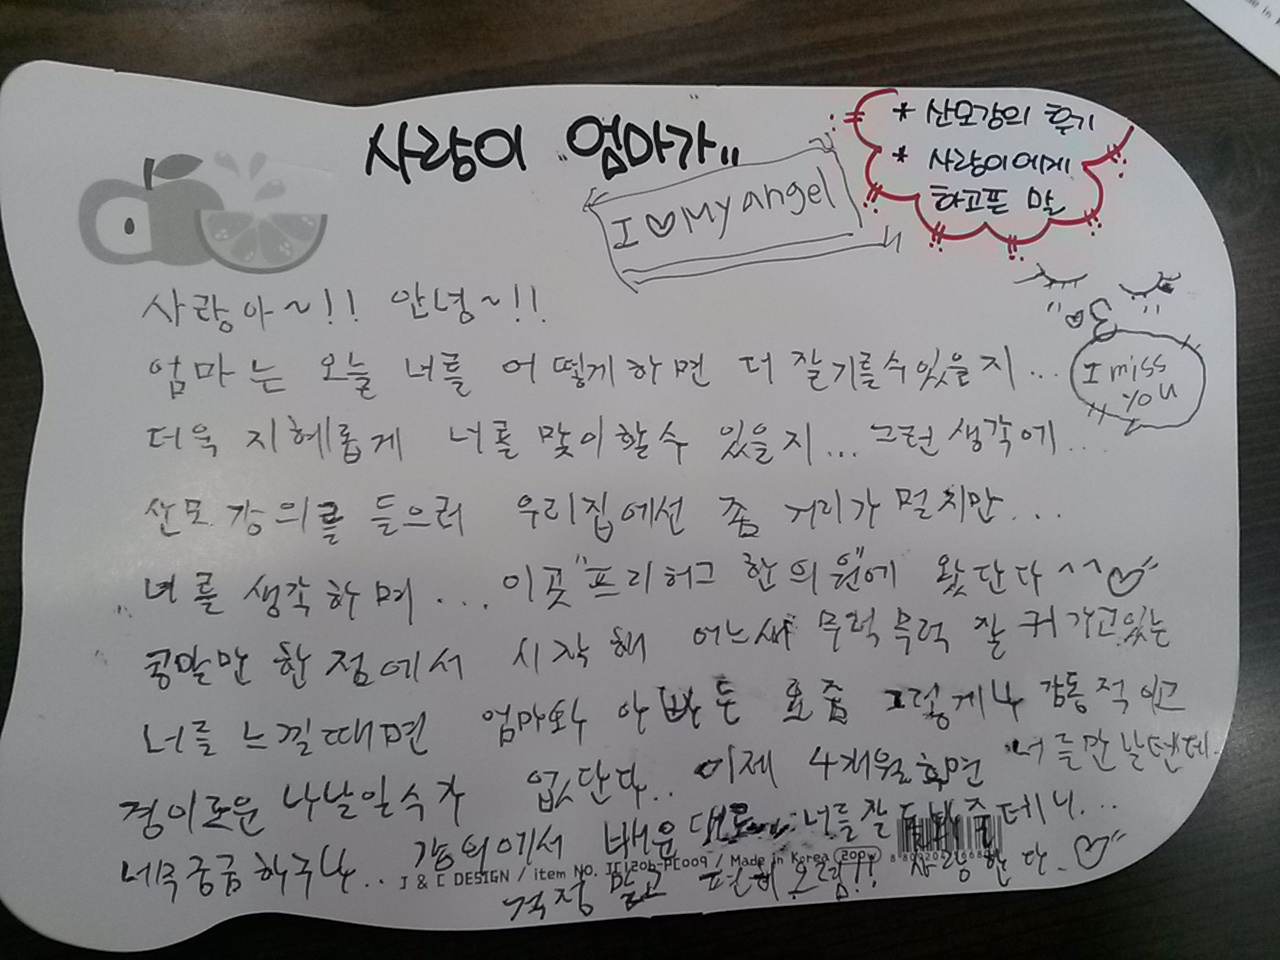 사랑이 "엄마가"
* 산모강의 후기
* 사랑이에게
하고픈 말
I ♡ My angel
사랑아~!! 안녕~!!
엄마는 오늘 너를 어떻게하면 더 잘기를수있을지...
I miss
you
더욱 지혜롭게 너를 맞이할수 있을지... 그런 생각에...
산모 강의를 들으러 우리집에선 좀 거리가 멀지만...
너를 생각하며... 이곳 "프리허그 한의원"에 왔단다^^♡
콩알만 한 점에서 시작해 어느새 무럭무럭 잘 커가고있는
너를 느낄때면 엄마와 아빤 요즘 그렇게나 감동적이고
경이로운 나날일수가 없단다.. 이제 4개월후면 너를만날텐데.
너무궁금하구나.. 강의에서 배운대로 너를잘 줄테니...
걱정 말고 오렴!! 사랑한다.♡
J & C DESIGN / item NO. / Made in Korea